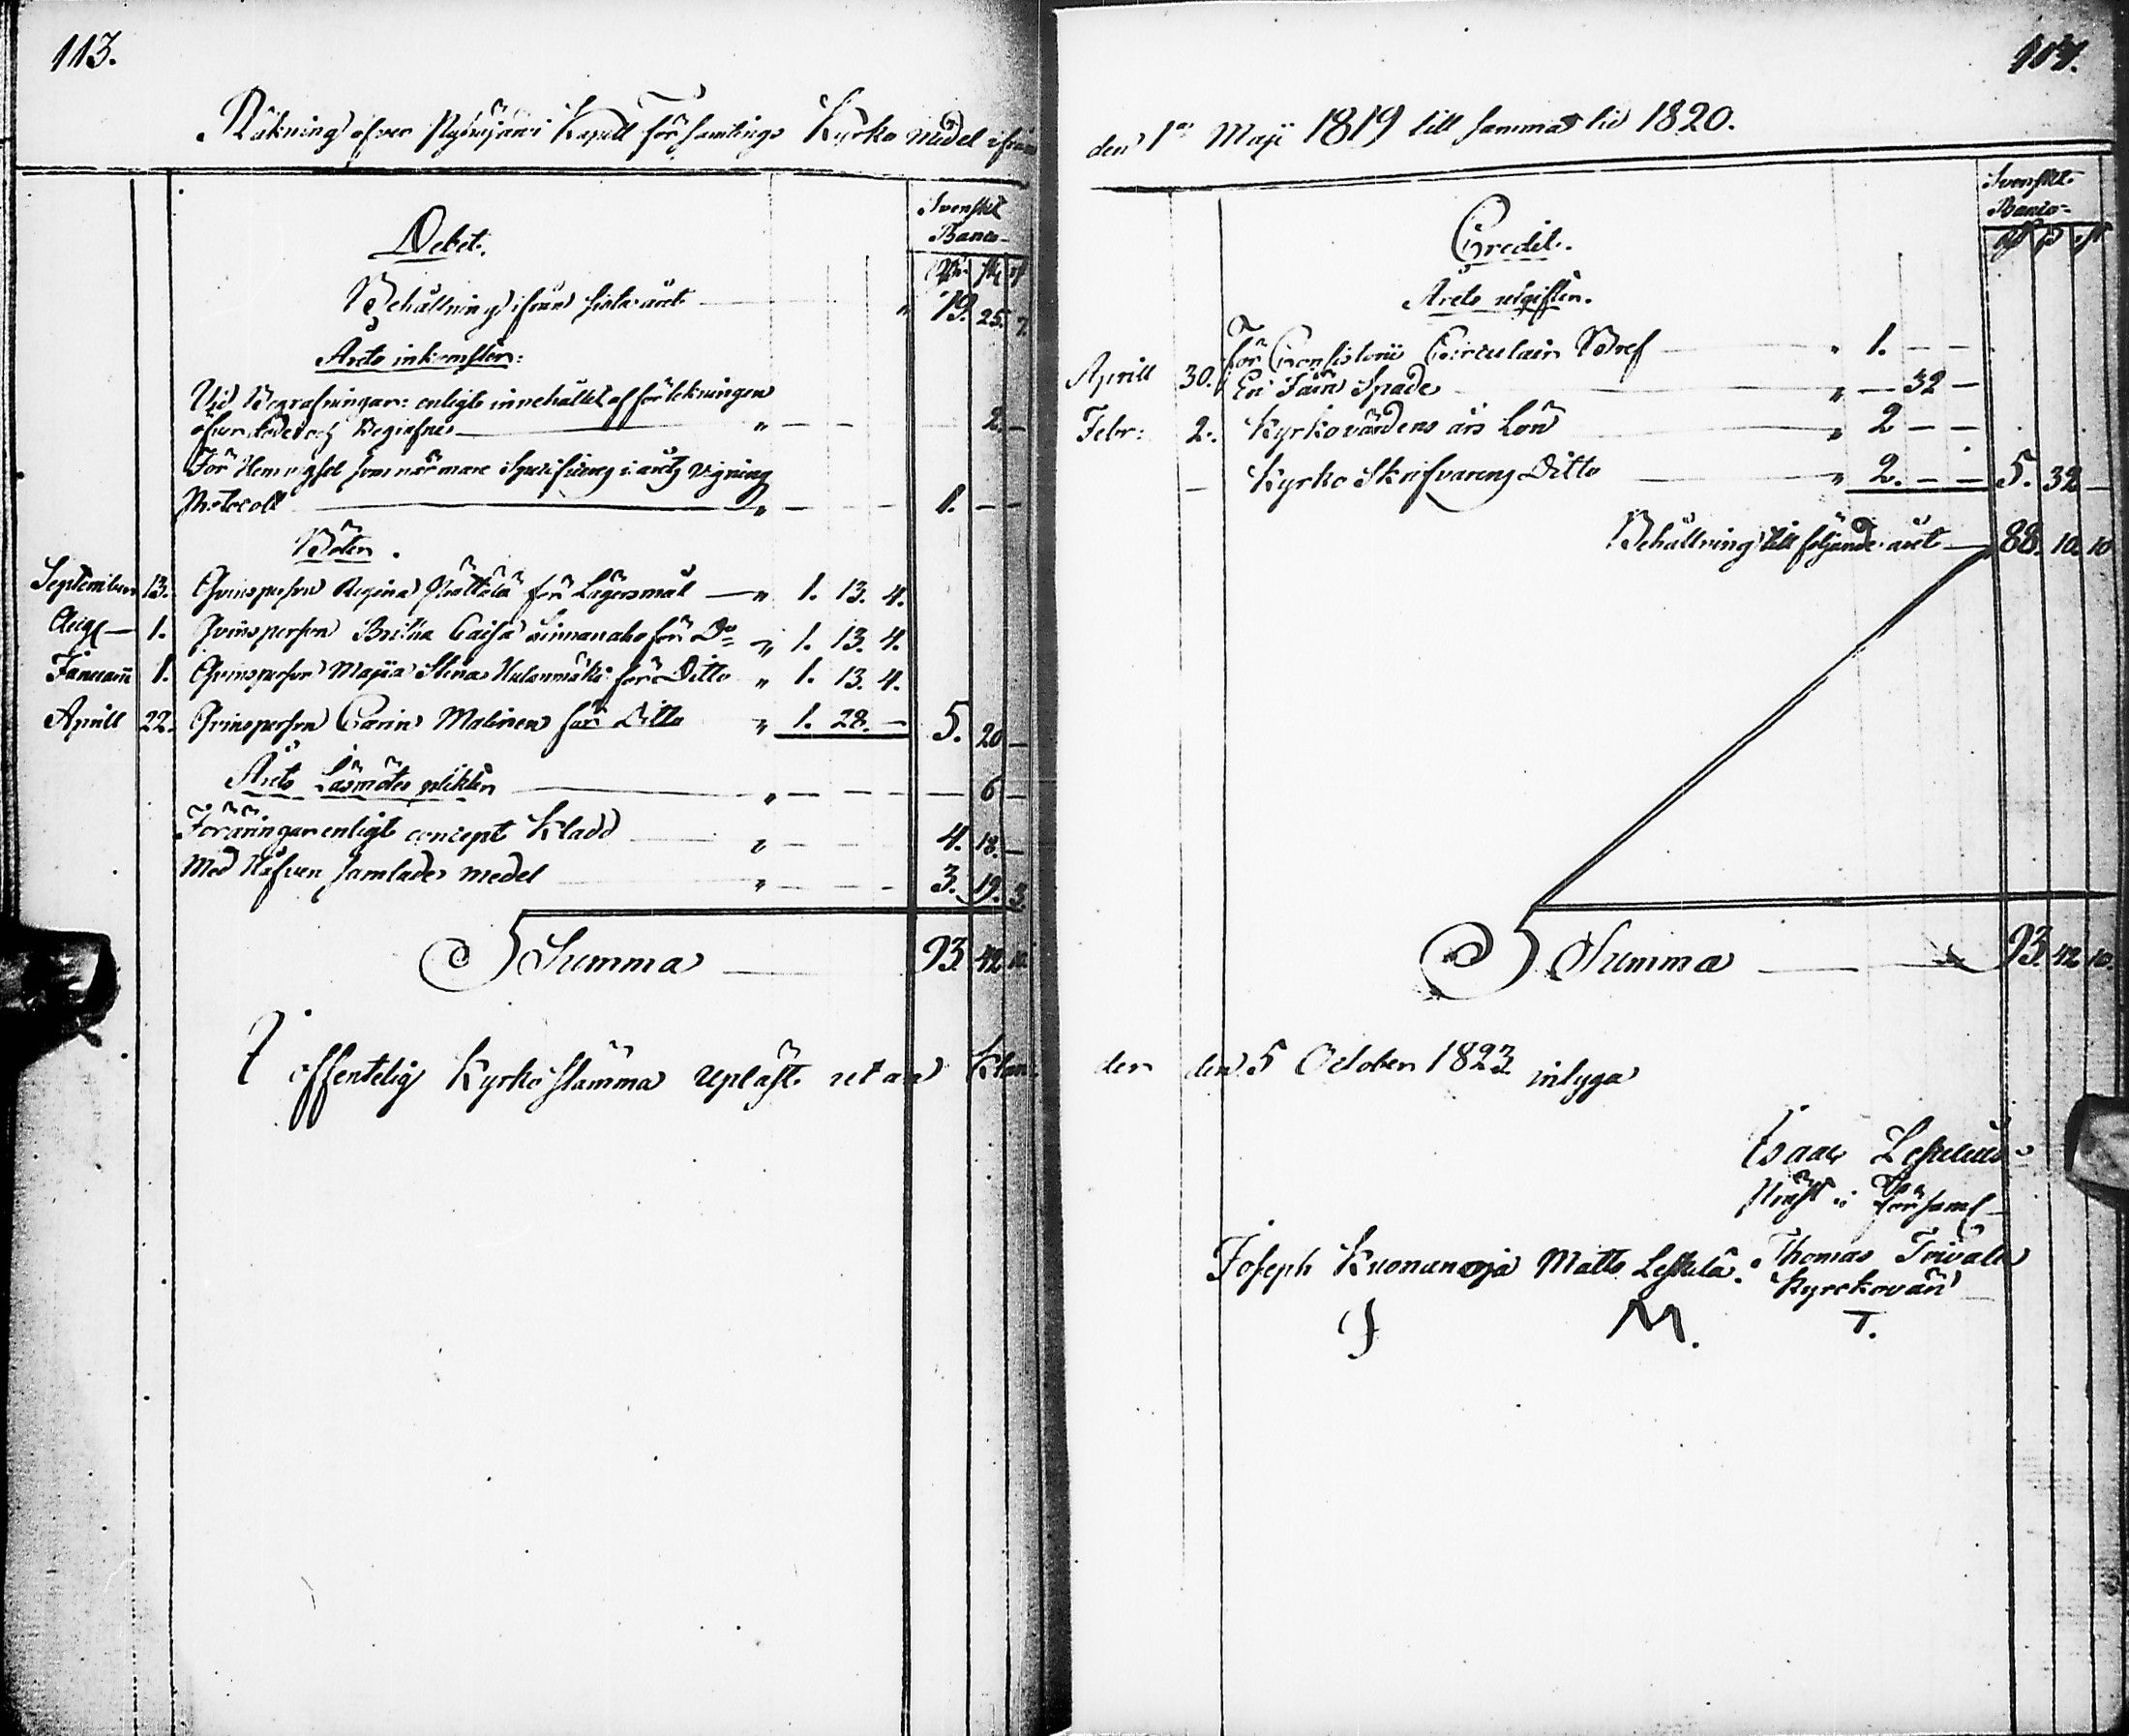 113.
Räkning öfver Pyhäjärvi Kapell Församlings Kyrko medel ifrån
Svenskt
Banco
Debet.
Behållning ifrån sista året " 19. 25. 7.
Årets inkomster:
Vid Begrafningar: enligt innehållet af förtekningen
öfver döde och Begrafne " 2. —
För som närmare i årets vigning
Protocoll " 1. — —
Böter.
September 13. Qvinspersson Regina för Lägersmål " 1. 13. 4.
Aug 1. Qvinsperson Britha Caisa Linnanaho för Do " 1. 13. 4.
Januarii 1. Qvinspersson Majia Stina för Ditto " 1. 13. 4.
Aprill 22. Qvinspersson Carin Malinen för Ditto " 1. 28. — 5. 20 —
Årets Läsmötes plikter " — 6 —
Föräringar enligt concept Kladd " 4. 18. —
Med Håfven samlade medel " 3. 19. 3.
Summa 93. 42. 10.
I offentelig Kyrkostämma upläst utan Klan-
den 1sta Maji 1819 till samma tid 1820.
Svenskt
Banco
Credit.
Årets utgifter.
För Consistorii Circulair Bref " 1. — —
Aprill 30. En Järn Spade " — 32 —
Febr: 2. Kyrkovärdens års Lön " 2 — —
— Kyrko Skrifvarens Ditto " 2. — — 5. 32 —
Behållning till följande året 88. 10. 10
Summa 93. 42. 10.
der den 5 October 1823 intyga
Isaac
Präst i Församl
Joseph Kuonanoja Matts Leskelä. Thomas
Kyrckovärd
J M. T.